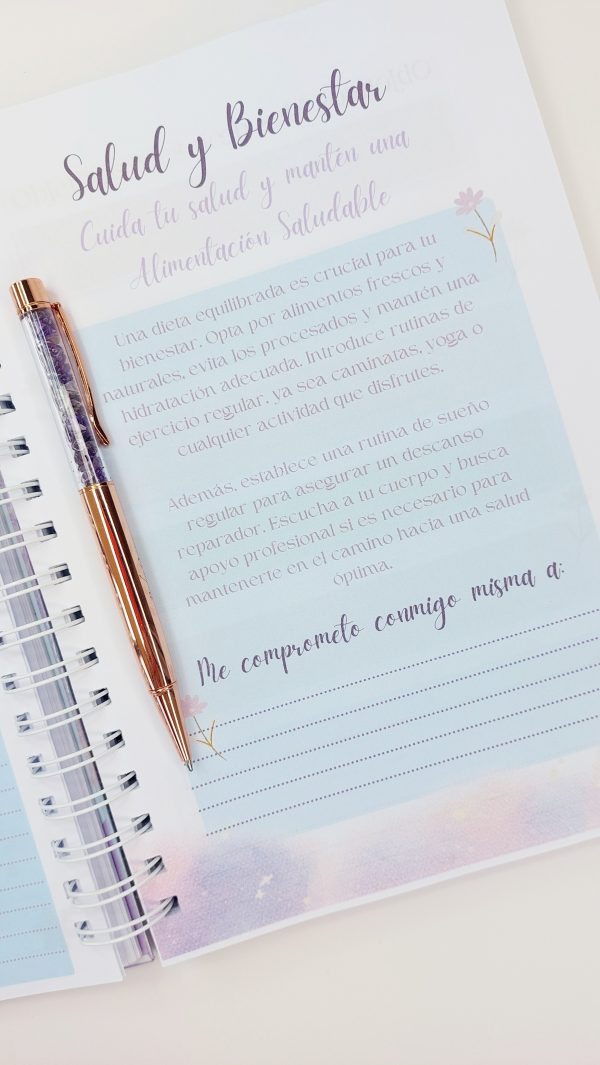 Salud y Bienestar
Cuida tu salud y mantén una
Alimentación Saludable
Una dieta equilibrada es crucial para tu
bienestar. Opta por alimentos frescos y
naturales, evita los procesados y mantén una
hidratación adecuada. Introduce rutinas de
ejercicio regular, ya sea caminatas, yoga o
cualquier actividad que disfrutes.
Además, establece una rutina de sueño
regular para asegurar un descanso
reparador. Escucha a tu cuerpo y busca
apoyo profesional si es necesario para
mantenerte en el camino hacia una salud
óptima.
Me comprometo conmigo misma a: